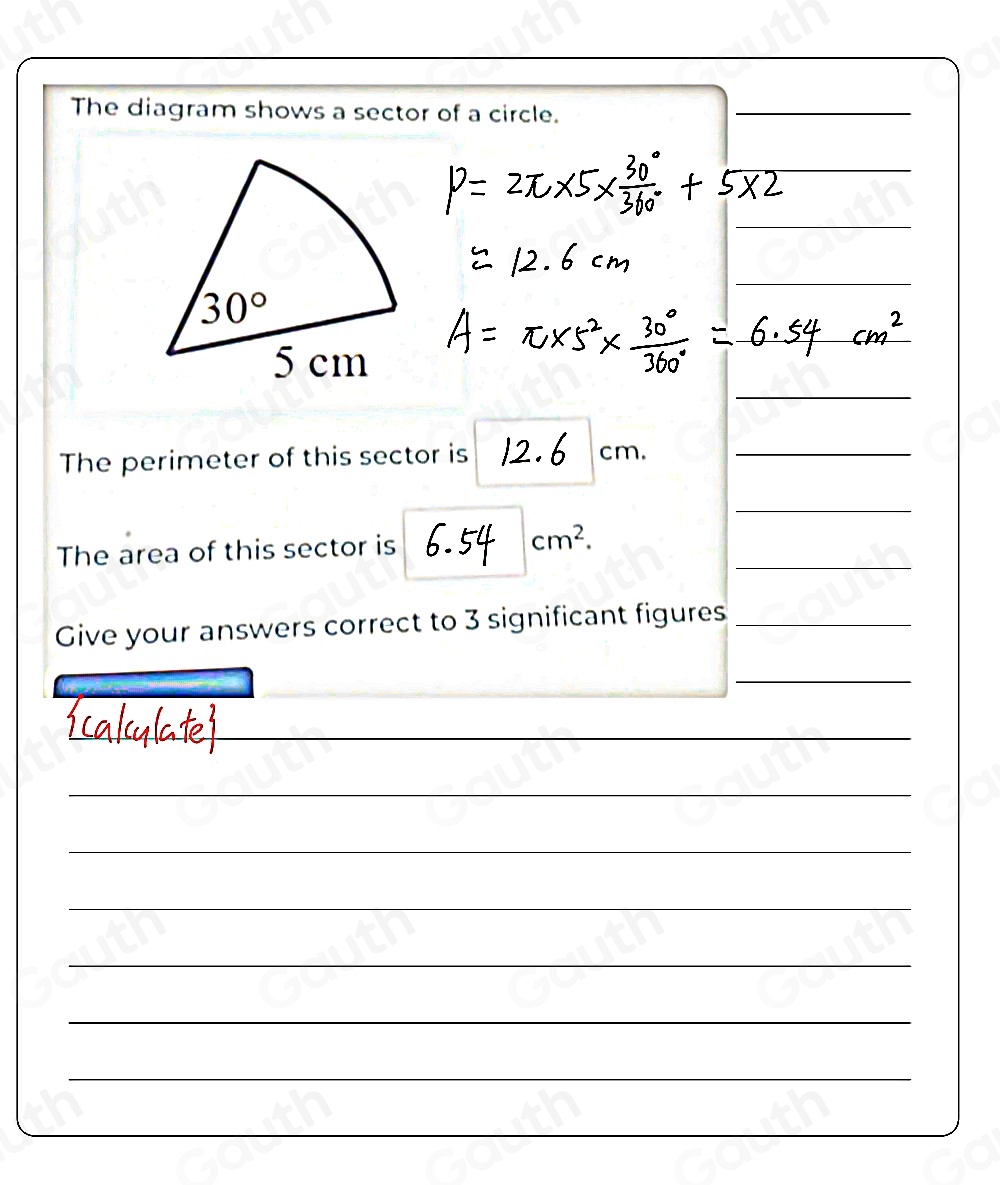 The diagram shows a sector of a circle.
P = 2π×5×30°/360° + 5×2
≈ 12.6 cm
30°
5 cm
A = π×5²×30°/360° = 6.54 cm²
The perimeter of this sector is 12.6 cm.
The area of this sector is 6.54 cm².
Give your answers correct to 3 significant figures
{calculate}
Gauth